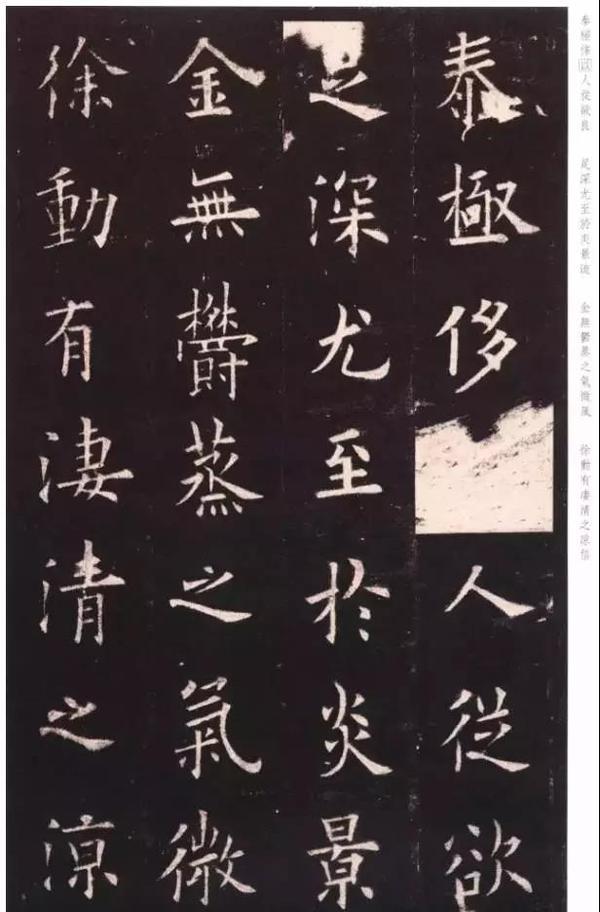 泰極侈人從欲
足深尤至於炎景
金無欝蒸之氣微
徐動有淒清之涼
泰極侈以人從欲良 足深尤至於炎景流 金無鬱蒸之氣微風 徐動有淒清之涼信